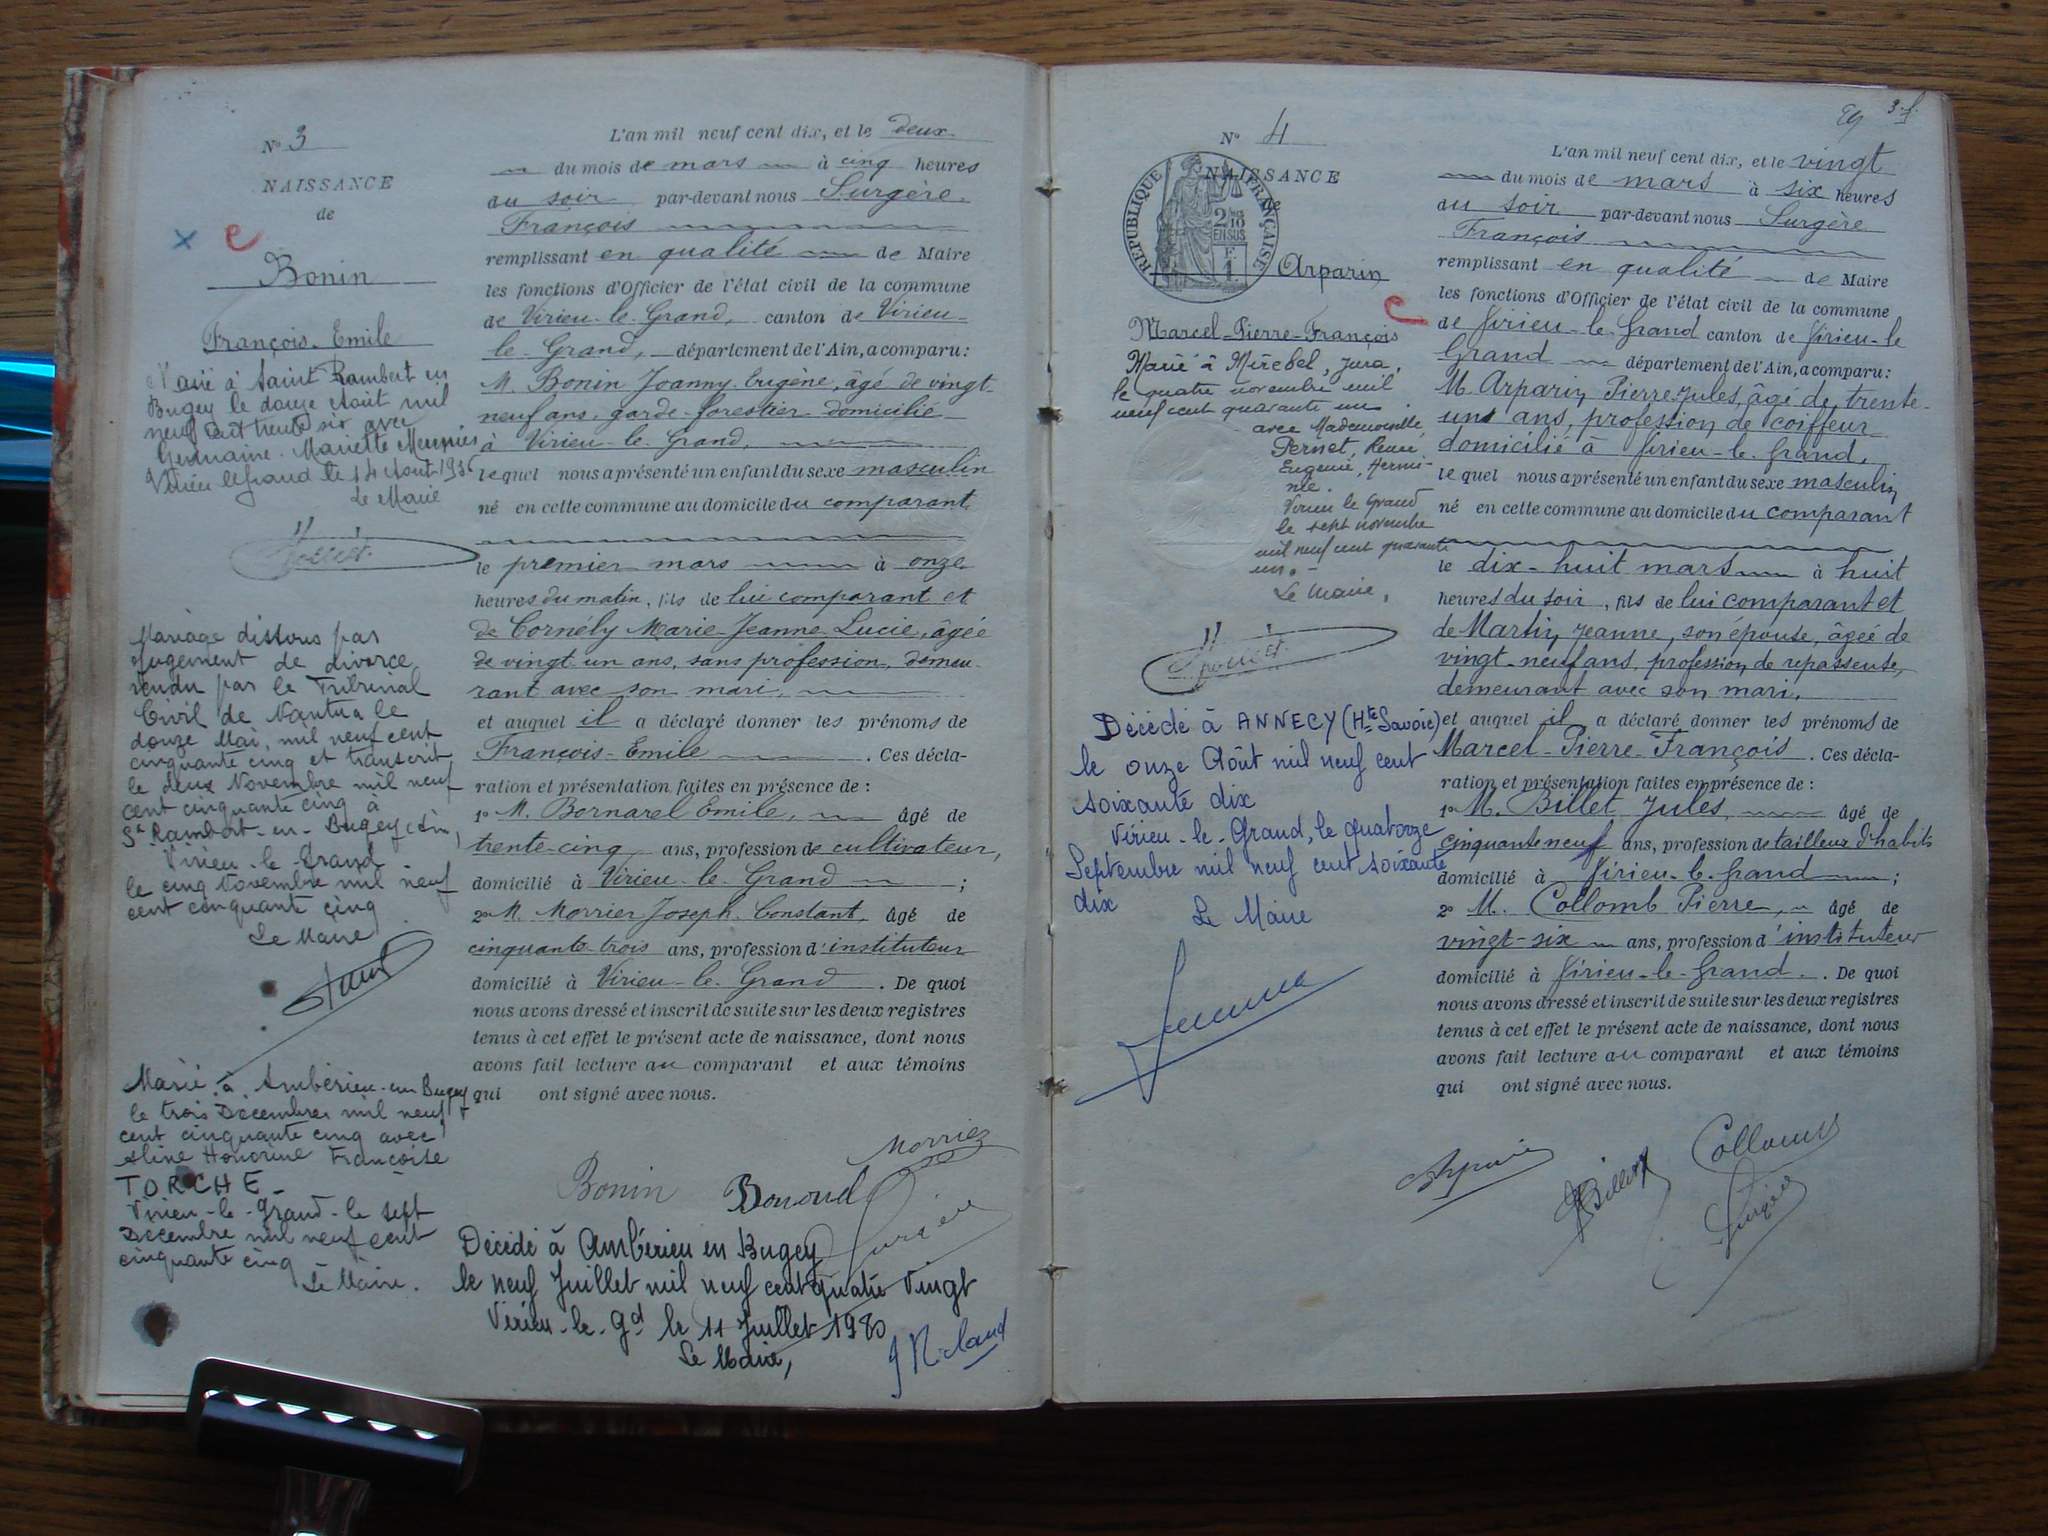 N° 3
NAISSANCE
de
Bonin
François-Emile
Marié à Saint Rambert en
Bugey le douze Août mil
neuf cent trente six avec
Germaine Mariette Meunier
Virieu le Grand le 14 Août 1936
Le Maire
Mariage dissous par
jugement de divorce
rendu par le Tribunal
Civil de Nantua le
douze Mai, mil neuf cent
cinquante cinq et transcrit
le deux Novembre mil neuf
cent cinquante cinq à
St Rambert-en-Bugey (Ain)
Virieu-le-Grand
le cinq Novembre mil neuf
cent cinquante cinq
Le Maire
Marié à Ambérieu-en-Bugey
le trois Décembre mil neuf
cent cinquante cinq avec
Aline Honorine Françoise
TORCHE
Virieu-le-Grand-le sept
Décembre mil neuf cent
cinquante cinq
Le Maire.
L'an mil neuf cent dix, et le deux
du mois de mars à cinq heures
du soir par-devant nous Surgère
François
remplissant en qualité de Maire
les fonctions d'Officier de l'état civil de la commune
de Virieu-le-Grand, canton de Virieu-
le-Grand, département de l'Ain, a comparu:
M. Bonin Joanny Eugène, âgé de vingt
neuf ans, garde-forestier domicilié
à Virieu-le-Grand,
lequel nous a présenté un enfant du sexe masculin
né en cette commune au domicile du comparant
le premier mars à onze
heures du matin, fils de lui comparant et
de Cornély Marie-Jeanne-Lucie, âgée
de vingt un ans, sans profession, demeu-
rant avec son mari,
et auquel il a déclaré donner les prénoms de
François-Emile. Ces décla-
ration et présentation faites en présence de :
1° M. Bornarel Emile, âgé de
trente-cinq ans, profession de cultivateur,
domicilié à Virieu-le-Grand ;
2° M. Morrier Joseph Constant, âgé de
cinquante-trois ans, profession d'instituteur
domicilié à Virieu-le-Grand. De quoi
nous avons dressé et inscrit de suite sur les deux registres
tenus à cet effet le présent acte de naissance, dont nous
avons fait lecture au comparant et aux témoins
qui ont signé avec nous.
Morrier
Bonin
Surgère
Décédé à Ambérieu en Bugey
le neuf Juillet mil neuf cent quatre vingt
Virieu-le-Gd le 11 Juillet 1980
Le Maire,
N° 4
NAISSANCE
de
RÉPUBLIQUE FRANÇAISE
Arparin
Marcel-Pierre-François
Marié à Mirebel, Jura,
le quatre novembre mil
neuf cent quarante un
avec Mademoiselle
Pernet, Renée
Eugénie, Hermi-
nie.
Virieu le Grand
le sept novembre
mil neuf cent quarante
un.-
Le Maire,
Décédé à ANNECY (Hte Savoie)
le onze Août mil neuf cent
soixante dix
Virieu-le-Grand, le quatorze
Septembre mil neuf cent soixante
dix
Le Maire
L'an mil neuf cent dix, et le vingt
du mois de mars à six heures
du soir par-devant nous Surgère
François
remplissant en qualité de Maire
les fonctions d'Officier de l'état civil de la commune
de Virieu-le-Grand canton de Virieu-le
Grand département de l'Ain, a comparu:
M. Arparin Pierre Jules, âgé de trente-
uns ans, profession de coiffeur
domicilié à Virieu-le-Grand,
lequel nous a présenté un enfant du sexe masculin
né en cette commune au domicile du comparant
le dix-huit mars à huit
heures du soir, fils de lui comparant et
de Martin Jeanne, son épouse, âgée de
vingt-neuf ans, profession de repasseuse,
demeurant avec son mari,
et auquel il a déclaré donner les prénoms de
Marcel-Pierre-François. Ces décla-
ration et présentation faites en présence de :
1° M. Billet Jules, âgé de
cinquante neuf ans, profession de tailleur d'habits
domicilié à Virieu-le-Grand ;
2° M. Collomb Pierre, âgé de
vingt-six ans, profession d'instituteur
domicilié à Virieu-le-Grand. De quoi
nous avons dressé et inscrit de suite sur les deux registres
tenus à cet effet le présent acte de naissance, dont nous
avons fait lecture au comparant et aux témoins
qui ont signé avec nous.
Arparin
Billet
Collomb
Surgère